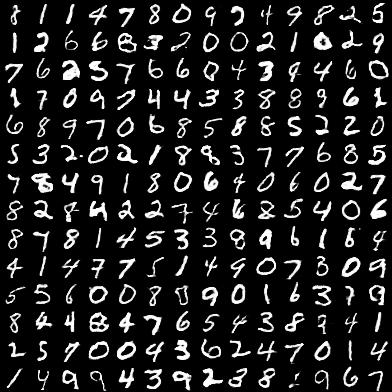 8 1 1 4 7 8 0 9 2 4 9 8 2 5
1 2 6 6 8 3 2 0 0 2 1 0 2 9
7 6 2 5 7 6 6 0 4 3 9 4 6 0
1 7 0 9 7 4 4 3 3 8 8 9 6 1
6 8 9 7 0 6 8 5 8 8 5 2 2 0
5 3 2 0 2 1 8 8 3 7 7 6 8 5
7 8 4 9 1 8 0 6 4 0 6 0 2 7
8 2 8 4 2 2 7 4 6 8 5 4 0 6
8 7 8 1 4 5 3 3 8 9 6 1 6 4
4 1 4 7 7 5 1 4 9 0 7 3 0 9
5 5 6 0 0 8 0 9 0 1 6 3 7 8
8 4 4 8 4 7 6 5 4 3 8 9 4 1
2 5 7 0 0 4 3 6 2 4 7 0 1 4
1 4 9 9 4 3 9 2 3 8 1 9 6 7